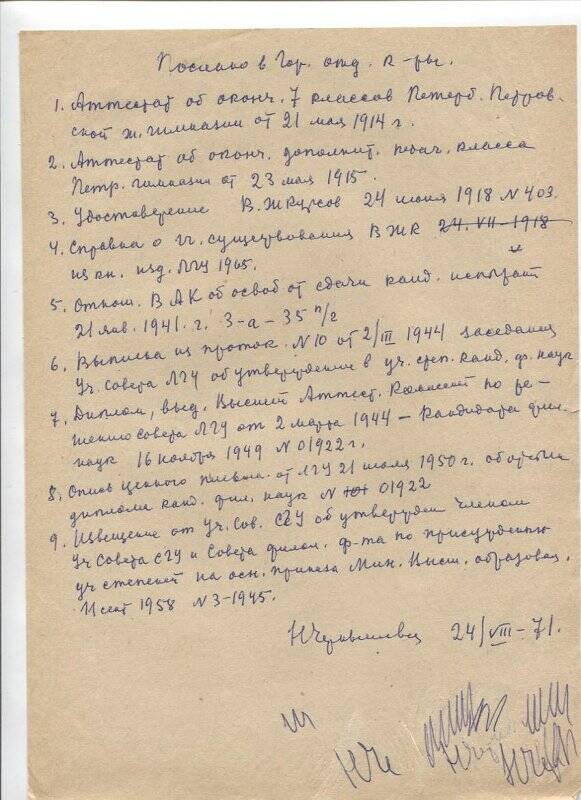 Послано в Гор. отд. к-ры.
1. Аттестат об оконч. 7 классов Петерб. Петров-
ской ж. гимназии от 21 мая 1914 г.
2. Аттестат об оконч. дополнит. педаг. класса
Петр. гимназии от 23 мая 1915.
3. Удостоверение В.Ж.Курсов 24 июня 1918 N 403.
4. Справка о гг. существования ВЖК 24.VII-1918
из кн. изд. ЛГУ 1965.
5. Отнош. ВАК об освоб от сдачи канд. испыт
21 янв. 1941. г. 3-а-35 п/г
6. Выписка из проток. N 10 от 2/III 1944 заседания
Уч. Совета ЛГУ об утверждении в уч. степ. канд. ф. наук
7. Диплом, выд. Высшей Аттест. Комиссией по ре-
шению Совета ЛГУ от 2 марта 1944 - кандидата фил.
наук 16 ноября 1949 N 01922 г.
8. Опись ценного письма от ЛГУ 21 июля 1950 г.
диплома канд. фил. наук N 01922
9. Извещение от Уч. Сов. СГУ об утвержден членом
Уч Совета СГУ и Совета филол. ф-та по присуждению
уч степеней на осн. приказа Мин. Высш. образован.
11 сент 1958 N 3-1945.
24/VIII-71.
НЧе